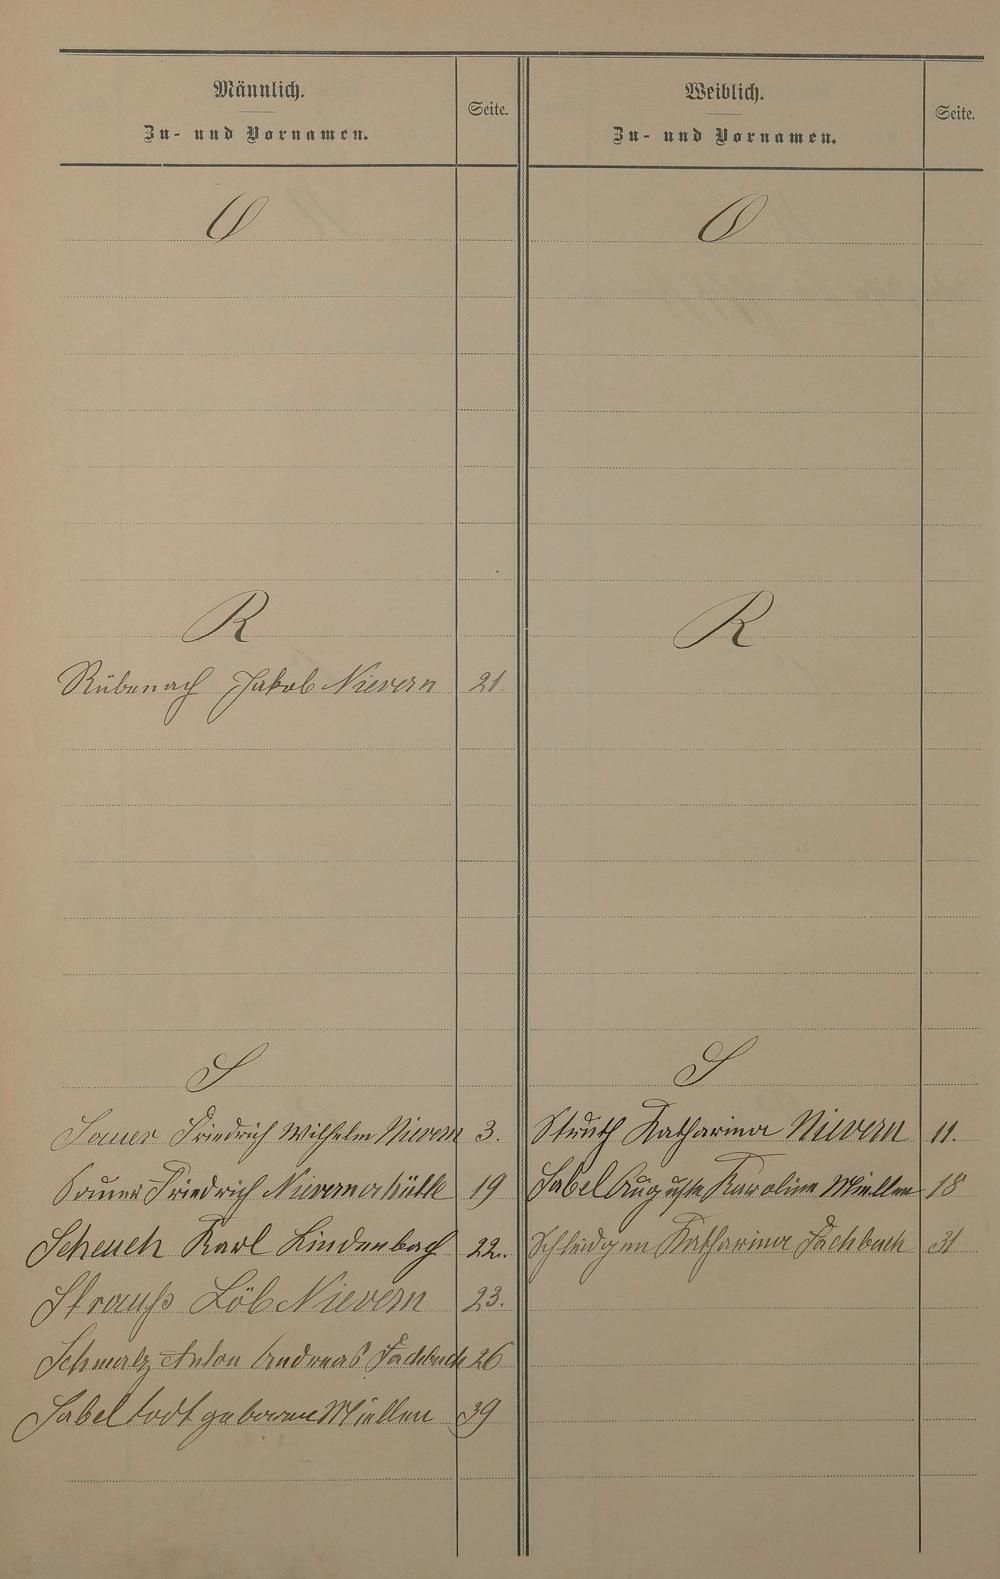 Männlich.
Zu- und Vornamen.
Seite.
O
R
Rübenach Jakob Nievern 21.
S
Sauer Friedrich Wilhelm Nievern 3.
Sauer Friedrich Nievernerhütte 19
Scheuch Karl Lindenbach 22.
Strauß Löb Nievern 23.
Schmalz Anton Andreas Fachbach 26
Sabel todt geboren Miellen 39
Weiblich.
Zu- und Vornamen.
Seite.
O
R
S
Struth Katharina Nievern 11.
Sabel Auguste Karoline Miellen 18
Schleidgen Katharina Fachbach 31